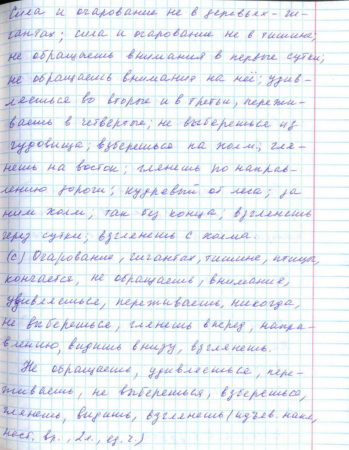 Сила и очарование не в деревьях-ги-
гантах; сила и очарование не в тишине;
не обращаешь внимания в первые сутки;
не обращаешь внимания на неё; удив-
ляешься во вторые и в третьи, пережи-
ваешь в четвертые; не выберешься из
чудовища; взберешься на холм; гля-
нешь на восток; глянешь по направ-
лению дороги; кудрявый от леса; за
ним холм, так без конца; взглянешь
через сутки; взглянешь с холма.
(с) Очарование, гигантах, тишине, птицы,
кончается, не обращаешь, внимание,
удивляешься, переживаешь, никогда,
не выберешься, глянешь вперед, напра-
влению, видишь внизу, взглянешь.
Не обращаешь, удивляешься, пере-
живаешь, не выберешься, взберешься,
глянешь, видишь, взглянешь (изъев. накл.,
наст. вр., 2 л., ед. ч.)